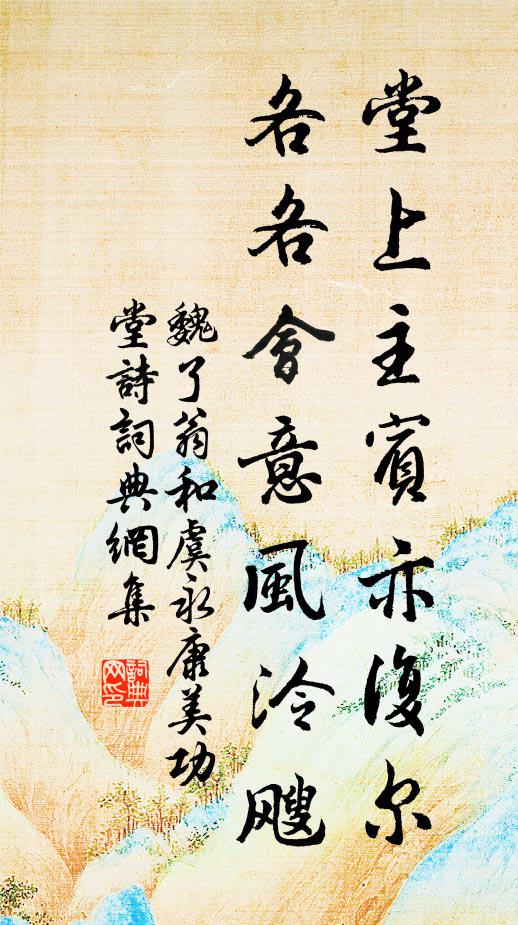 堂上主賓亦復尔
各各會意風泠颼
魏了翁和虞永康美功
堂詩詞典網集
詞典
网印